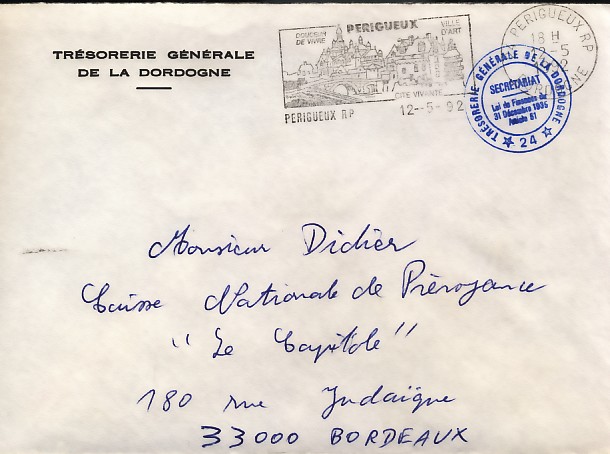 TRÉSORERIE GÉNÉRALE
DE LA DORDOGNE
DOUCEUR
DE VIVRE
PERIGUEUX
VILLE
D'ART
CITE VIVANTE
PERIGUEUX RP
12-5-92
PERIGUEUX RP
18 H
12-5
DORDOGNE
TRÉSORERIE GÉNÉRALE DE LA DORDOGNE
SECRÉTARIAT
Loi de Finances du
31 Décembre 1935
Article 61
★ 24 ★
Monsieur Didier
Caisse Nationale de Prévoyance
"Le Capitole"
180 rue Judaïque
33000 BORDEAUX